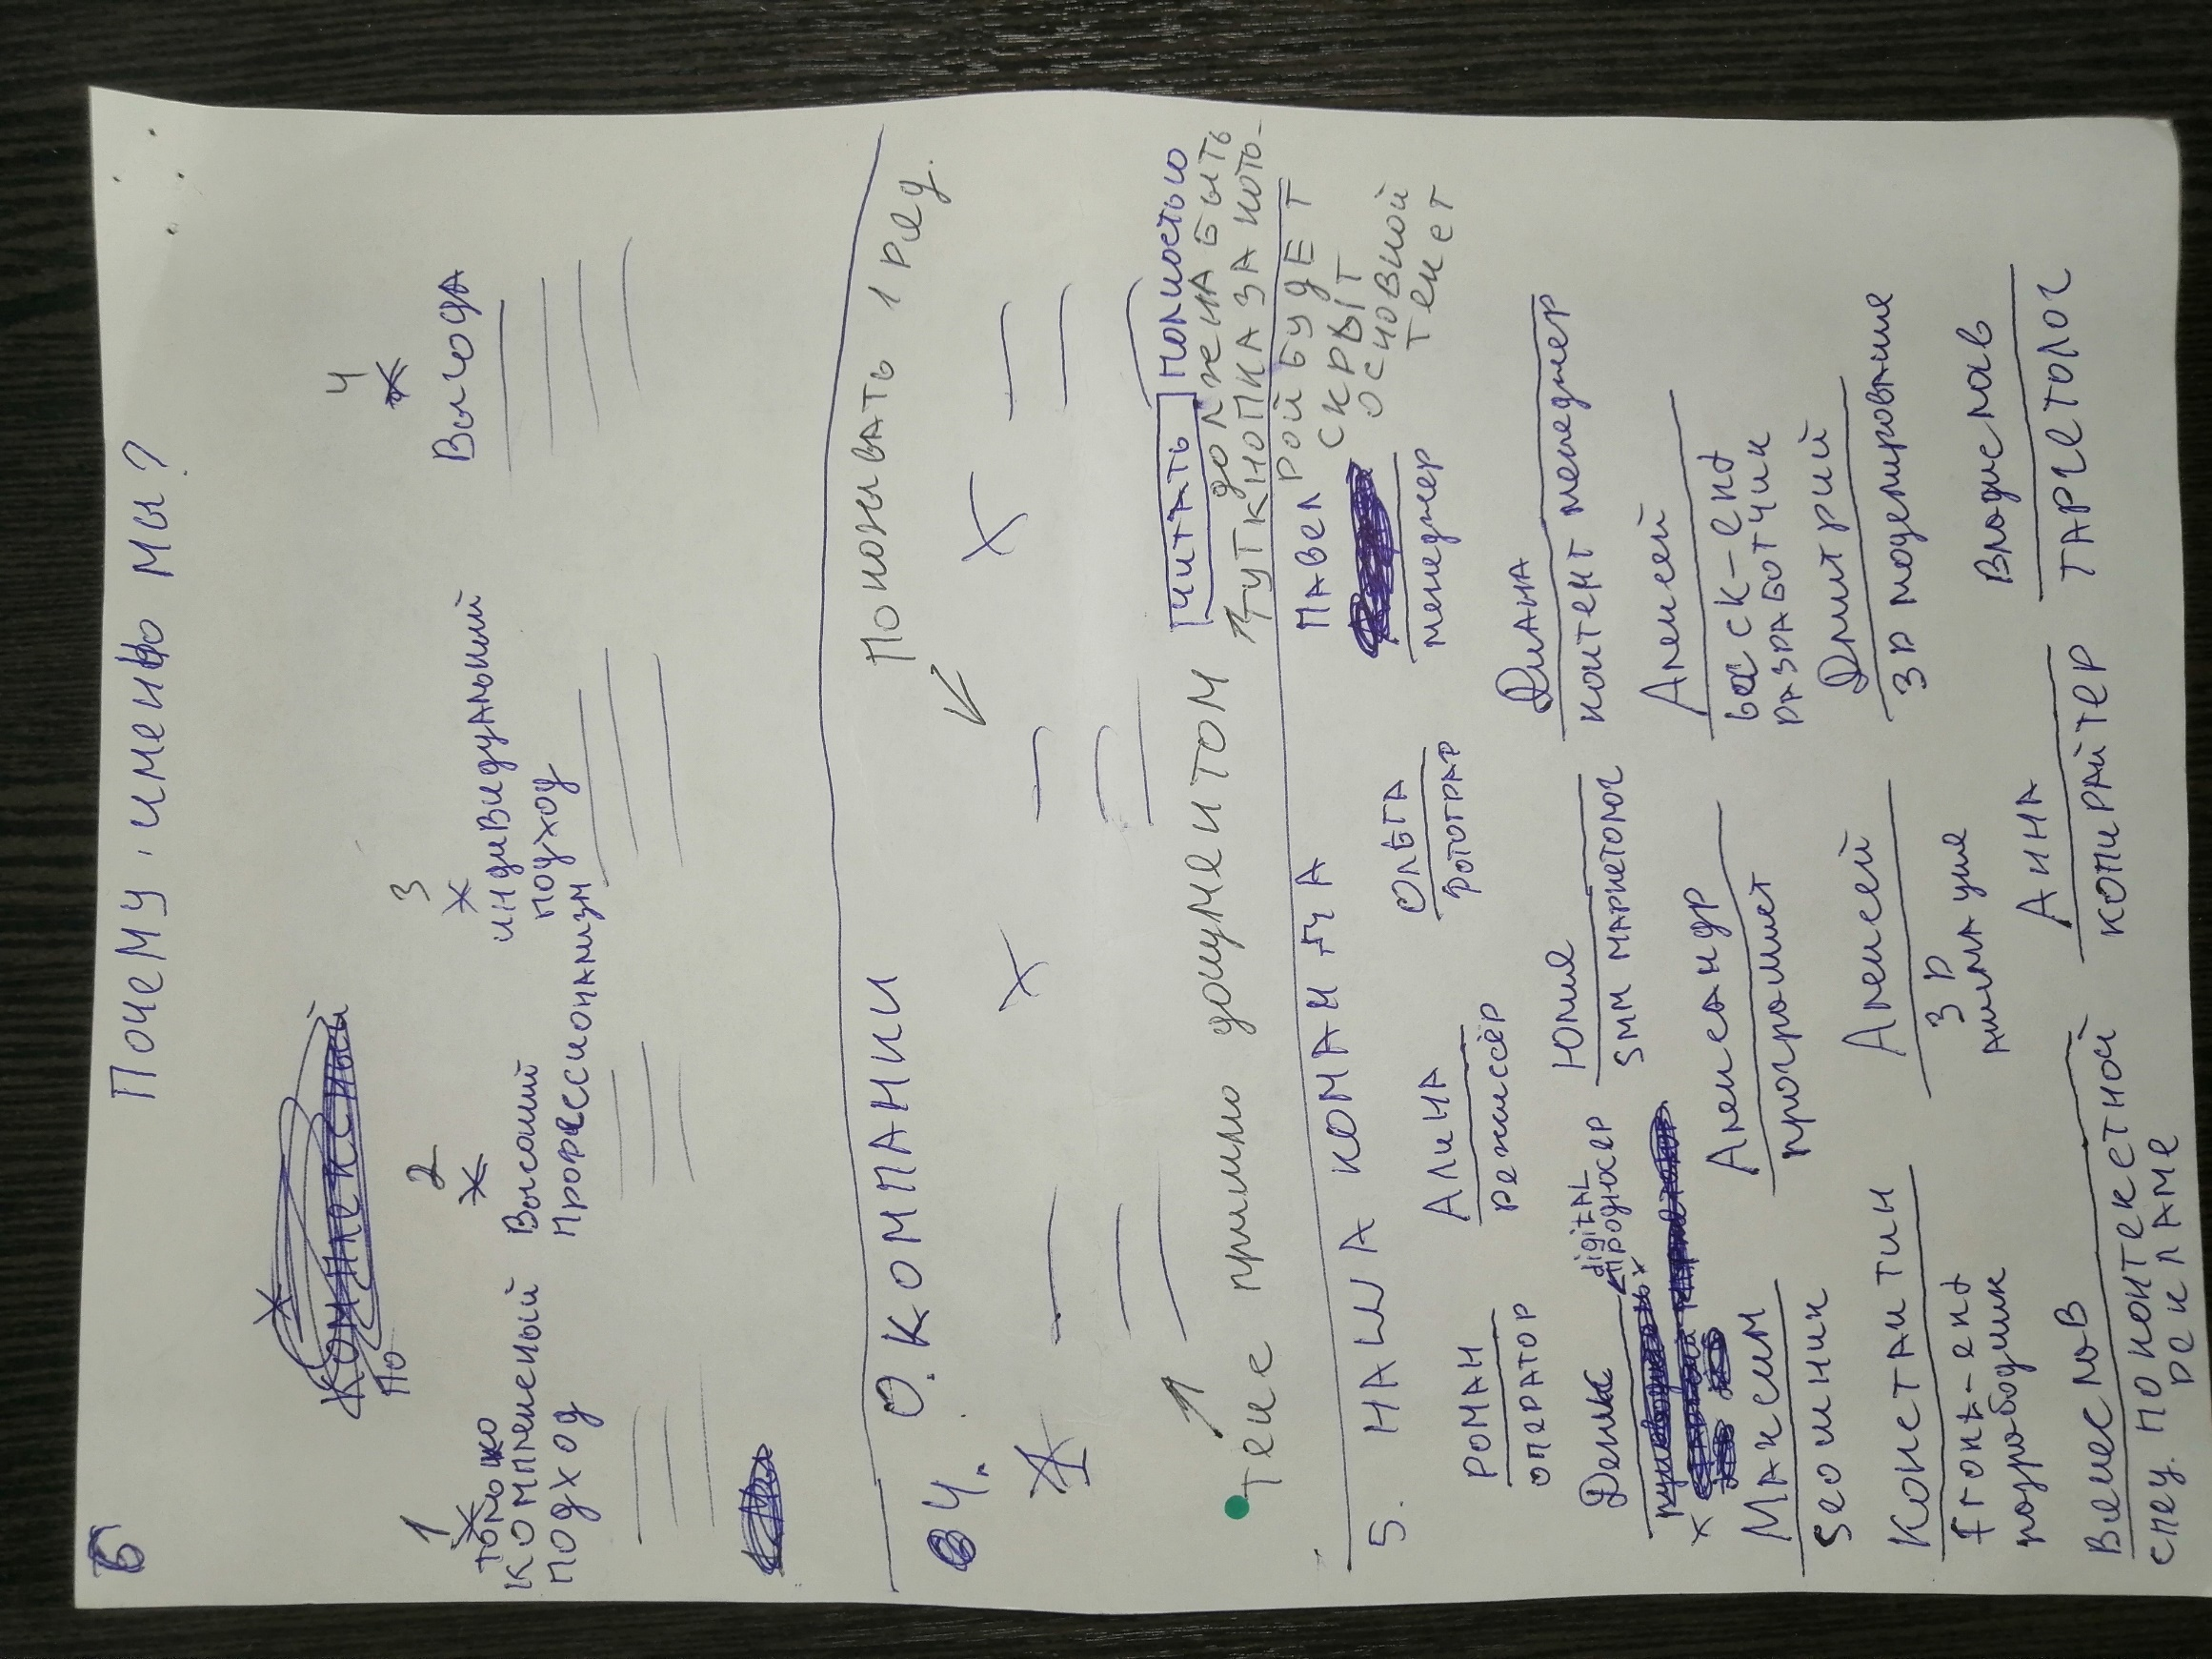 Почему именно мы?
1
2
3
4
только
комплексный
подход
Высокий
Профессионализм
индивидуальный
подход
Выгода
4. О. КОМПАНИИ
Показывать 1 ряд.
текс пришлю документом
ЧИТАТЬ полностью
ТУТ КНОПКА ЗА КОТО-
должна быть
РОЙ БУДЕТ
СКРЫТ
основной
текст
5. НАША КОМАНДА
РОМАН
ОПЕРАТОР
АЛИНА
режиссёр
ОЛЬГА
Фотограф
ПАВЕЛ
менеджер
Денис
digital
продюсер
Юлия
SMM маркетолог
Диана
контент менеджер
Максим
Seoшник
Александр
програмист
Алексей
back-end
разработчик
Константин
front-end
Алексей
3D
анимация
Дмитрий
3D моделирование
спец. по контекстной
рекламе
Анна
копирайтер
Владислав
ТАРГЕТОЛОГ